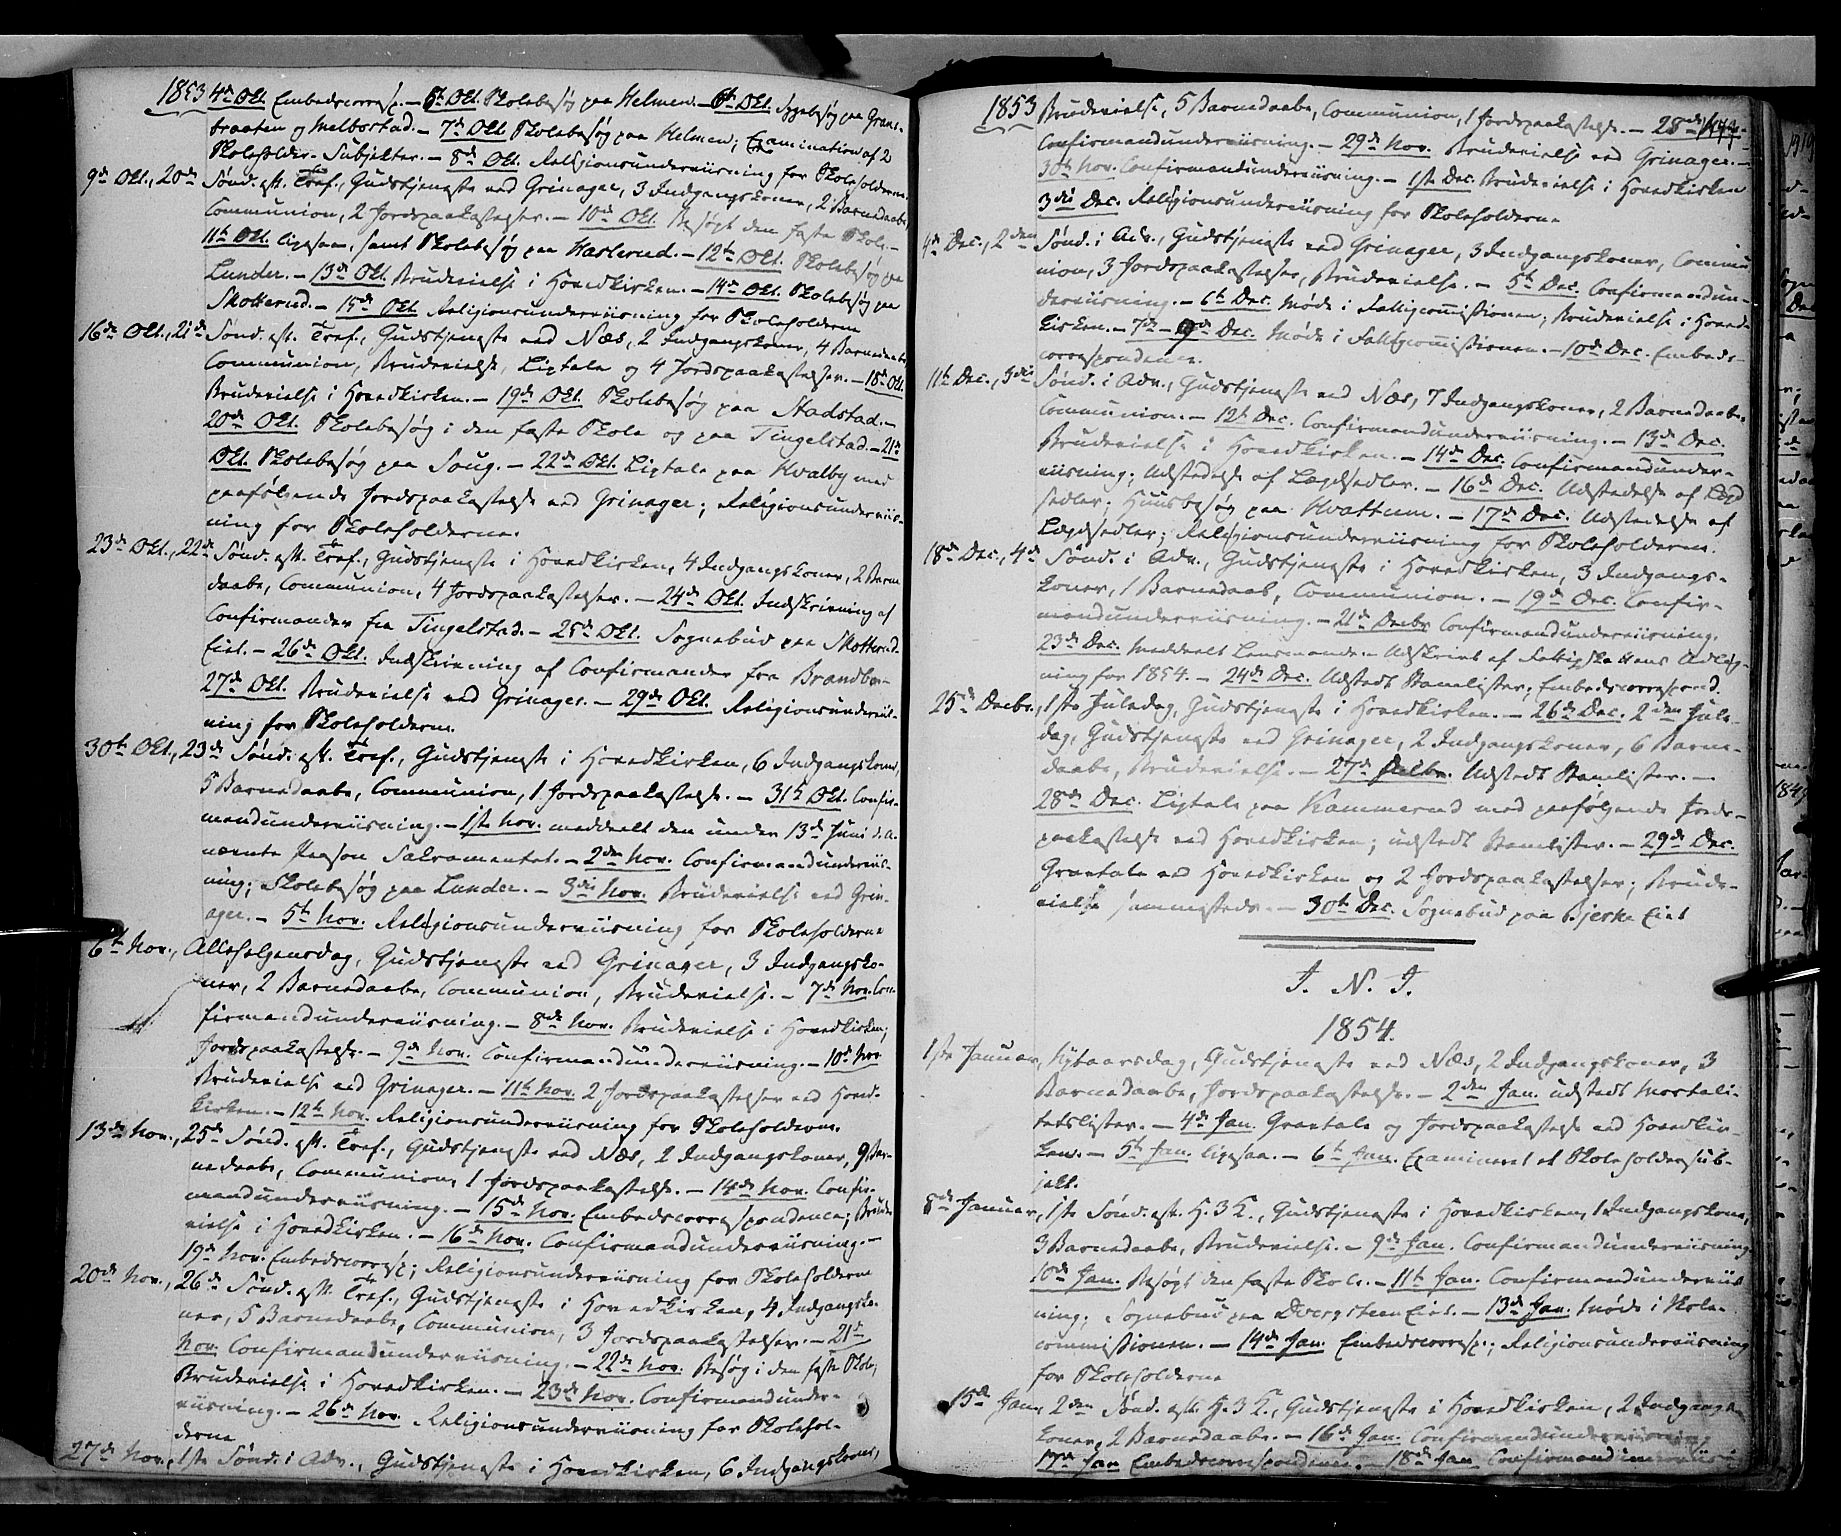 1853 4de Okt. Embedscorresp. – 5te Okt. Skolebesøg paa Helmen. – 6te Okt. Sygebesøg paa Grans-
braaten og Melbostad. – 7de Okt. Skolebesøg paa Helmen; Examination af 2
Skoleholder-Subjekter. – 8de Okt. Religionsunderviisning for Skoleholderne
9de Okt., 20de Sønd. eft. Tref., Gudstjeneste ved Grinager, 3 Indgangskoner, 2 Barnedaabe,
Communion, 2 Jordspaakastelser. – 10de Okt. Besøgt den faste Skole. –
11te Okt. ligesaa, samt Skolebesøg paa Haslerud. – 12te Okt. Skolebesøg paa
Lunder. – 13de Okt. Brudevielse i Hovedkirken. – 14de Okt. Skolebesøg paa
Skotterud. – 15de Okt. Religionsunderviisning for Skoleholderne
16de Okt., 21de Sønd. eft. Tref., Gudstjeneste ved Næs, 2 Indgangskoner, 4 Barnedaabe,
Communion, Brudevielse, Ligtale og 4 Jordspaakastelser. – 18de Okt.
Brudevielse i Hovedkirken. – 19de Okt. Skolebesøg paa Stadstad. –
20de Okt. Skolebesøg i den faste Skole og paa Tingelstad. – 21de
Okt. Skolebesøg paa Soug. – 22de Okt. Ligtale paa Kvalby med
paafølgende Jordspaakastelse ved Grinager; Religionsunderviis-
ning for Skoleholderne.
23de Okt., 22de Sønd. eft. Tref., Gudstjeneste i Hovedkirken, 4 Indgangskoner, 2 Barne-
daabe, Communion, 4 Jordspaakastelser. – 24de Okt. Indskrivning af
Confirmander fra Tingelstad. – 25de Okt. Sognebud paa Skotterud-
Eiet. – 26de Okt. Indskrivning af Confirmander fra Brandbu –
27de Okt. Brudevielse ved Grinager. – 29de Okt. Religionsunderviis-
ning for Skoleholderne.
30te Okt., 23de Sønd. eft. Tref., Gudstjeneste i Hovedkirken, 6 Indgangskoner,
5 Barnedaabe, Communion, 1 Jordspaakastelse. – 31te Okt. Confir-
mandunderviisning. – 1ste Nov. meddeelt den under 13de Juni d. A.
nævnte Person Sakramentet. – 2den Nov. Confirmandunderviis-
ning; Skolebesøg paa Lunder. – 3die Nov. Brudevielse ved Grin-
ager. – 5te Nov. Religionsunderviisning for Skoleholderne
6te Nov., Allehelgensdag, Gudstjeneste ved Grinager, 3 Indgangsko-
ner, 2 Barnedaabe, Communion, Brudevielse. – 7de Nov. Con-
firmandunderviisning. – 8de Nov. Brudevielse i Hovedkirken;
Jordspaakastelse. – 9de Nov. Confirmandunderviisning. – 10de Nov.
Brudevielse ved Grinager. – 11te Nov. 2 Jordspaakastelser ved Hoved-
kirken. – 12te Nov. Religionsunderviisning for Skoleholderne.
13de Nov., 25de Sønd. eft. Tref., Gudstjeneste ved Næs, 2 Indgangskoner, 9 Bar-
nedaabe, Communion, 1 Jordspaakastelse. – 14de Nov. Confir-
mandunderviisning. – 15de Nov. Embedscorrespondence; Brude-
vielse i Hovedkirken. – 16de Nov. Confirmandunderviisning. –
19de Nov. Embedscorresp.; Religionsunderviisning for Skoleholderne
20de Nov., 26de Sønd. eft. Tref., Gudstjeneste i Hovedkirken, 4 Indgangsko-
ner, 5 Barnedaabe, Communion, 3 Jordspaakastelser. – 21de
Nov. Confirmandunderviisning. – 22de Nov. Besøg i den faste Skole;
Brudevielse i Hovedkirken. – 23de Nov. Confirmandunder-
viisning. – 26de Nov. Religionsunderviisning for Skolehol-
derne
27de Nov., 1ste Sønd. i Adv., Gudstjeneste i Hovedkirken, 6 Indgangskoner,
1853 Brudevielse, 5 Barnedaabe, Communion, 1 Jordspaakastelse. – 28de Nov.
Confirmandunderviisning. – 29de Nov. Brudevielse ved Grinager. –
30te Nov. Confirmandunderviisning. – 1ste Dec. Brudevielse i Hovedkirken
3die Dec. Religionsunderviisning for Skoleholderne
4de Dec., 2den Sønd. i Adv., Gudstjeneste ved Grinager, 3 Indgangskoner, Commu-
nion, 3 Jordspaakastelser, Brudevielse. – 5te Dec. Confirmandun-
derviisning. – 6te Dec. Møde i Fattigcommissionen; Brudevielse i Hoved-
kirken. – 7de – 9de Dec. Møde i Fattigcommissionen. – 10de Dec. Embeds-
correspondence.
11te Dec., 3die Sønd. i Adv., Gudstjeneste ved Næs, 7 Indgangskoner, 2 Barnedaabe,
Communion. – 12te Dec. Confirmandunderviisning. – 13de Dec.
Brudevielse i Hovedkirken. – 14de Dec. Confirmandunder-
viisning; Udstedelse af Lægdsedler. – 16de Dec. Udstedelse af Lægd-
sedler; Huusbesøg paa Hvattum. – 17de Dec. Udstedelse af
Lægdsedler; Religionsunderviisning for Skoleholderne.
18de Dec., 4de Sønd. i Adv., Gudstjeneste i Hovedkirken, 3 Indgangs-
koner, 1 Barnedaab, Communion. – 19de Dec. Confir-
mandunderviisning. – 21de Decbr. Confirmandunderviisning.
23de Dec. Meddeelt Lensmanden Udskrivt af Fattigskattens Udlig-
ning for 1854. – 24de Dec. Udstedt Stamlister; Embedscorrespond.
25de Decbr., 1ste Juledag, Gudstjeneste i Hovedkirken. – 26de Dec. 2den Jule-
dag, Gudstjeneste ved Grinager, 2 Indgangskoner, 6 Barne-
daabe, Brudevielse. – 27de Decbr. Udstedt Stamlister. –
28de Dec. Ligtale paa Kammerud med paafølgende Jords-
paakastelse ved Hovedkirken; udstedt Stamlister. – 29de Dec.
Gravtale ved Hovedkirken og 2 Jordspaakastelser; Brude-
vielse sammesteds. – 30te Dec. Sognebud paa Bjerke Eiet
J. N. J.
1854.
1ste Januar, Nytaarsdag, Gudstjeneste ved Næs, 2 Indgangskoner, 3
Barnedaabe, Jordspaakastelse. – 2den Jan. udstedt Mortali-
tetslister. – 4de Jan. Gravtale og Jordspaakastelse ved Hovedkir-
ken. – 5te Jan. ligesaa. – 6te Jan. Examineret et Skoleholdersub-
jekt.
8de Januar, 1ste Sønd. eft. H. 3 K., Gudstjeneste i Hovedkirken, 1 Indgangskone,
3 Barnedaabe, Brudevielse. – 9de Jan. Confirmandunderviisning
10de Jan. Besøgt den faste Skole. – 11te Jan. Confirmandunderviis-
ning; Sognebud paa Dvergsteen Eiet. – 13de Jan. Møde i Skole-
commissionen. – 14de Jan. Embedscorresp.; Religionsunderviisning
for Skoleholderne
15de Jan., 2den Sønd. eft. H. 3 K., Gudstjeneste i Hovedkirken, 2 Indgangs-
koner, 2 Barnedaabe. – 16de Jan. Confirmandunderviisning
17de Jan. Embedscorrespondence. – 18de Jan. Confirmandunderviis-